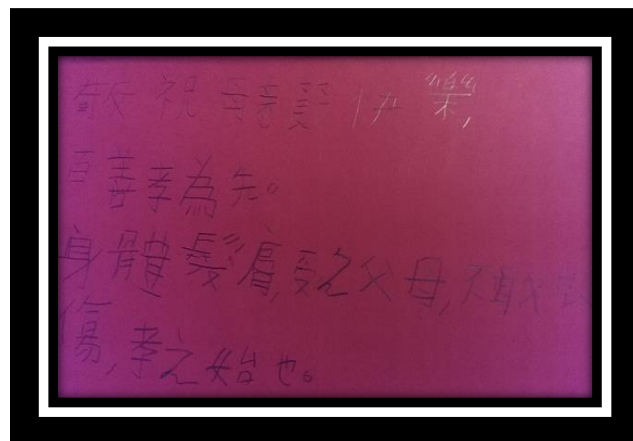 敬祝母親節快樂,
百善孝為先。
身體髮膚,受之父母,不敢毀
傷,孝之始也。